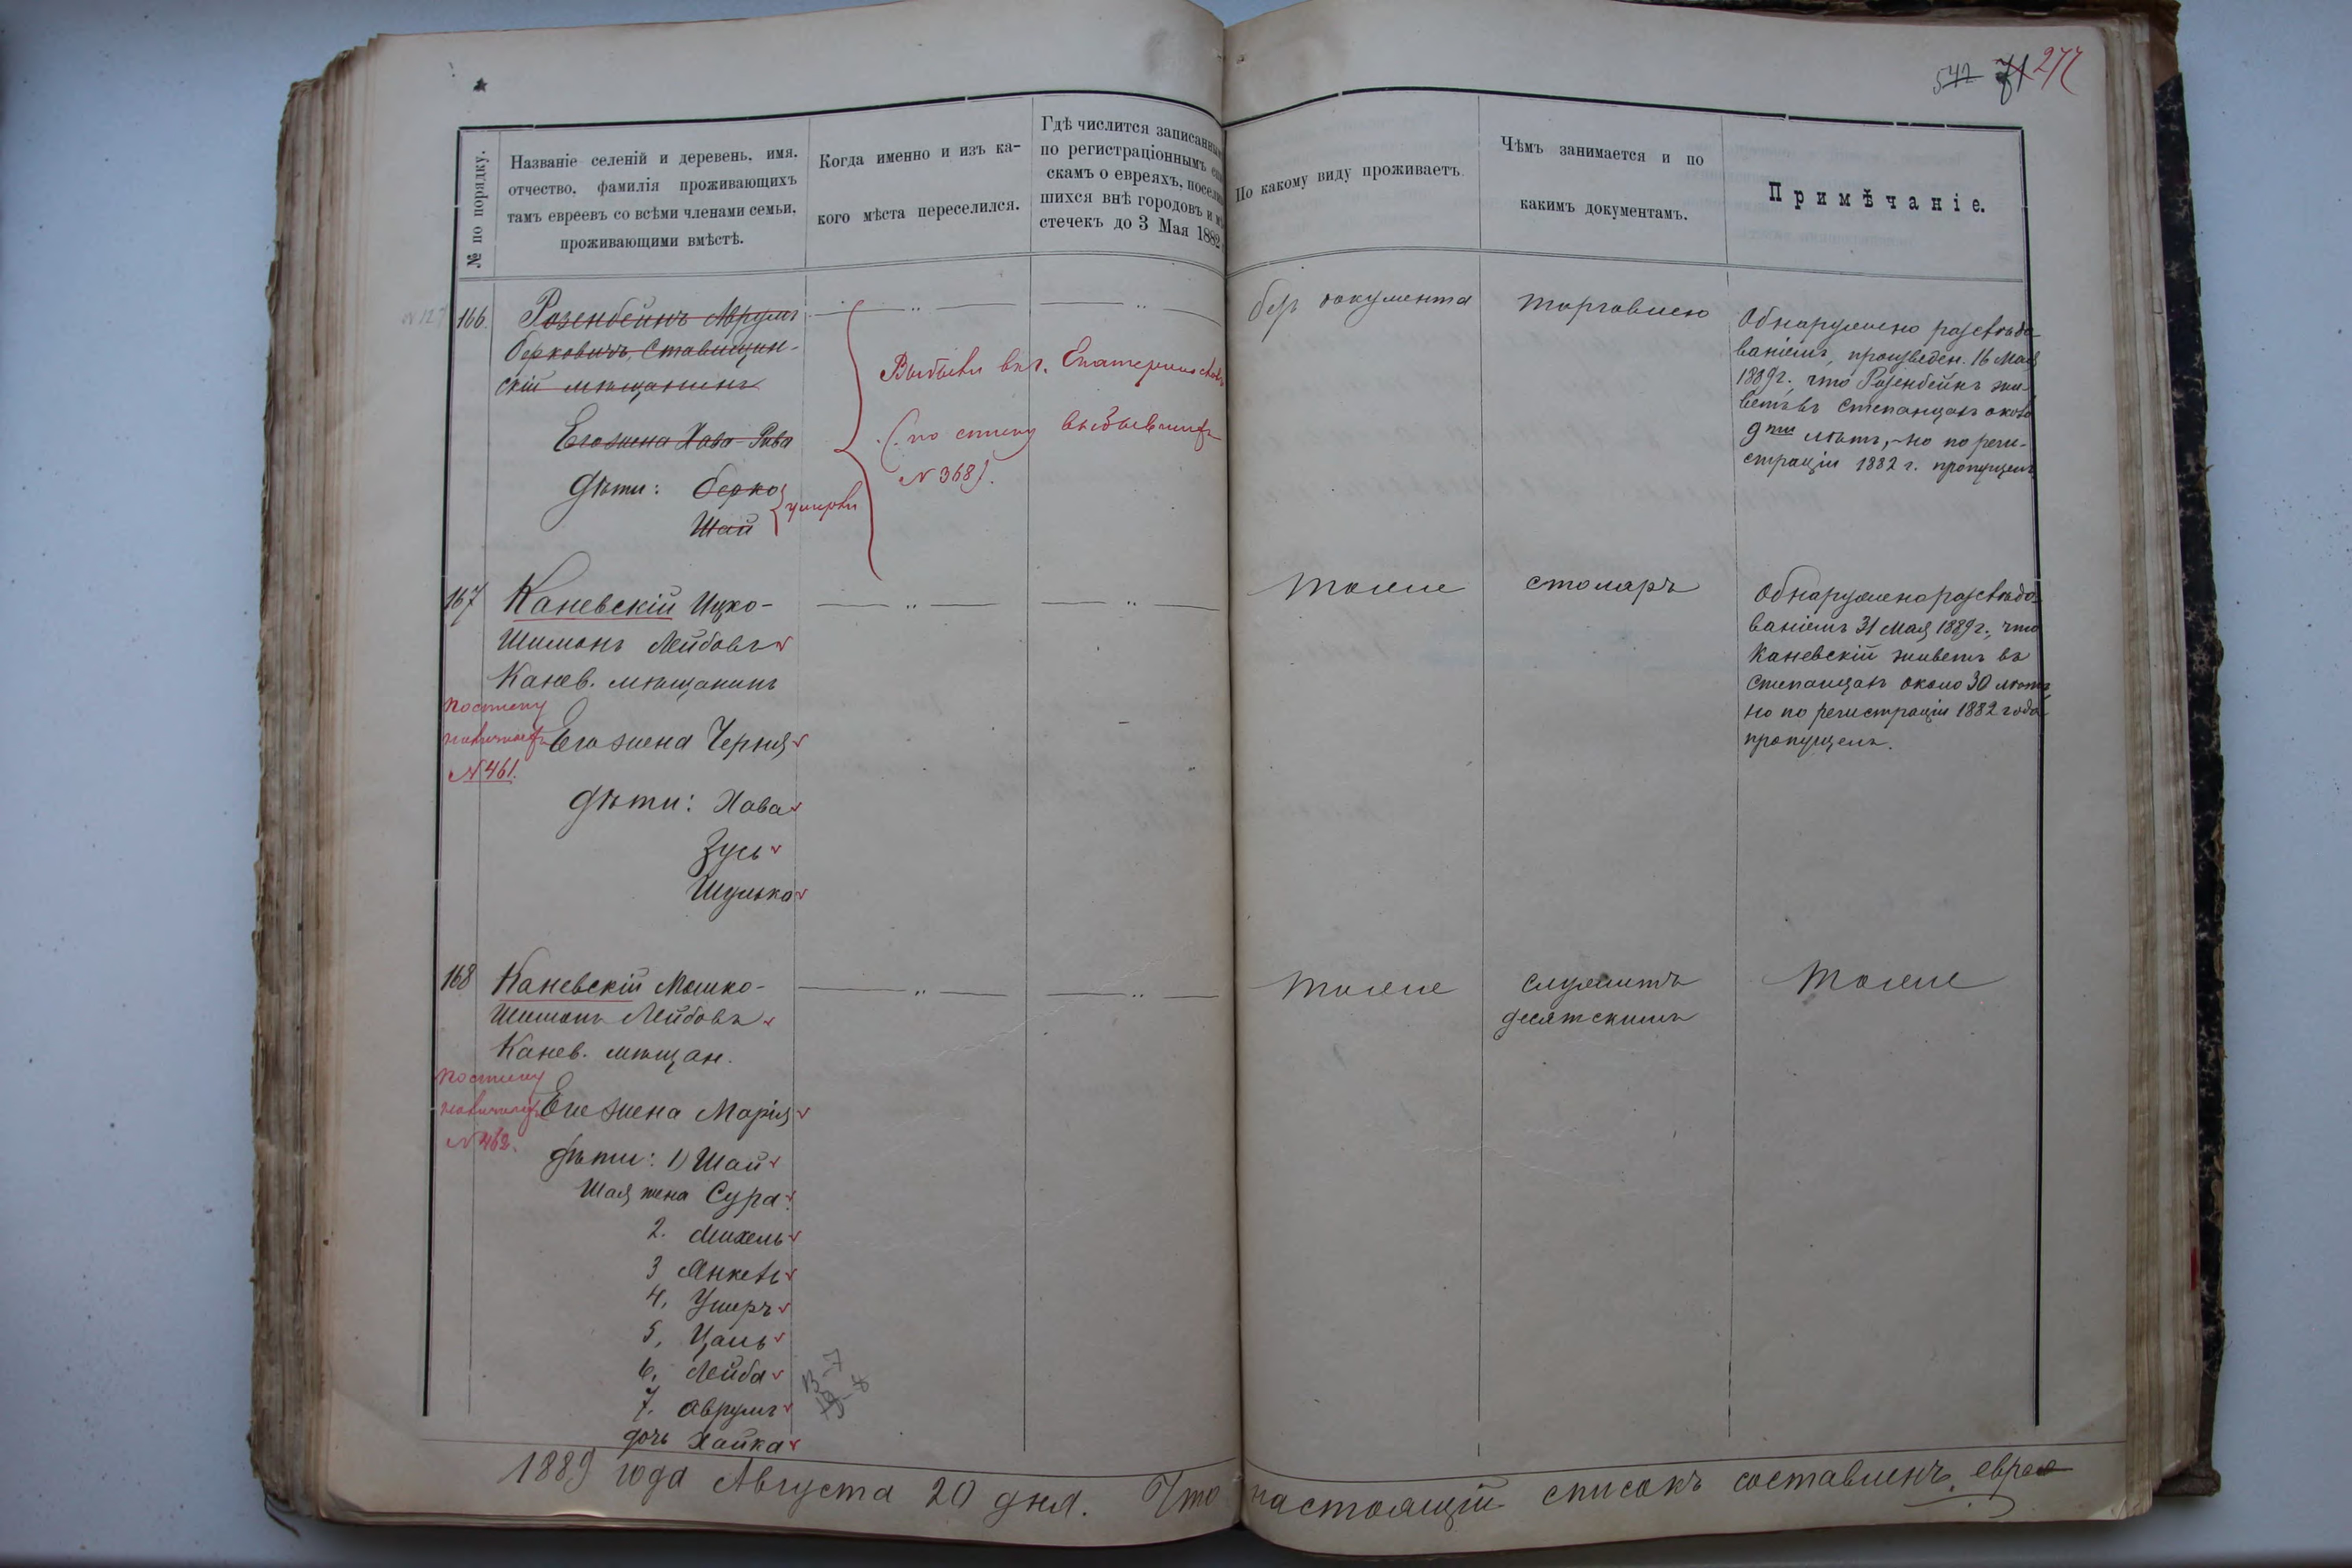 542 71 277
№ по порядку.
Названіе селеній и деревень, имя,
отчество, фамилія проживающихъ
тамъ евреевъ со всѣми членами семьи,
проживающими вмѣстѣ.
Когда именно и изъ ка-
кого мѣста переселился.
Гдѣ числится записаннымъ
по регистраціоннымъ
скамъ о евреяхъ, посели
шихся внѣ городовъ и
стечекъ до 3 Мая 1882
По какому виду проживаетъ.
Чѣмъ занимается и по
какимъ документамъ.
Примѣчаніе.
№ 127
166.
Розенбейнъ Аврумъ
Берковичъ, Ставищан-
скій мѣщанинъ
Его жена Хава-Рива
Дѣти: Берко
Шай
умерли
Выбыли въ г. Екатеринославъ
(по списку выбывшихъ
№ 368).
безъ документа
торговлею
Обнаружено розслѣдо-
ваніемъ, произведен. 16 Мая
1889 г., что Розенбейнъ жи-
ветъ въ Степанцахъ около
9ти лѣтъ, но по реги-
страціи 1882 г. пропущенъ
167
Каневскій Ицко-
Шимонъ Лейбовъ
Канев. мѣщанинъ
по списку
наличныхъ
№ 461.
Его жена Черня
Дѣти: Хава
Зусь
Шулька
тоже
столяръ
Обнаружено розслѣдо-
ваніемъ 31 Мая 1889 г., что
Каневскій живетъ въ
Степанцахъ около 30 лѣтъ,
но по регистраціи 1882 года
пропущенъ.
168
Каневскій Мошко-
Шимонъ Лейбовъ
Канев. мѣщан.
по списку
наличныхъ
№ 462.
Его жена Марія
Дѣти: 1) Шай
Шая жена Сура
2. Михель
3 Янкель
4, Ушеръ
5, Цаль
6, Лейба
7. Аврумъ
дочь Хайка
тоже
служитъ
десятскимъ
тоже
1889 года Августа 20 дня. Что настоящій списокъ составленъ,